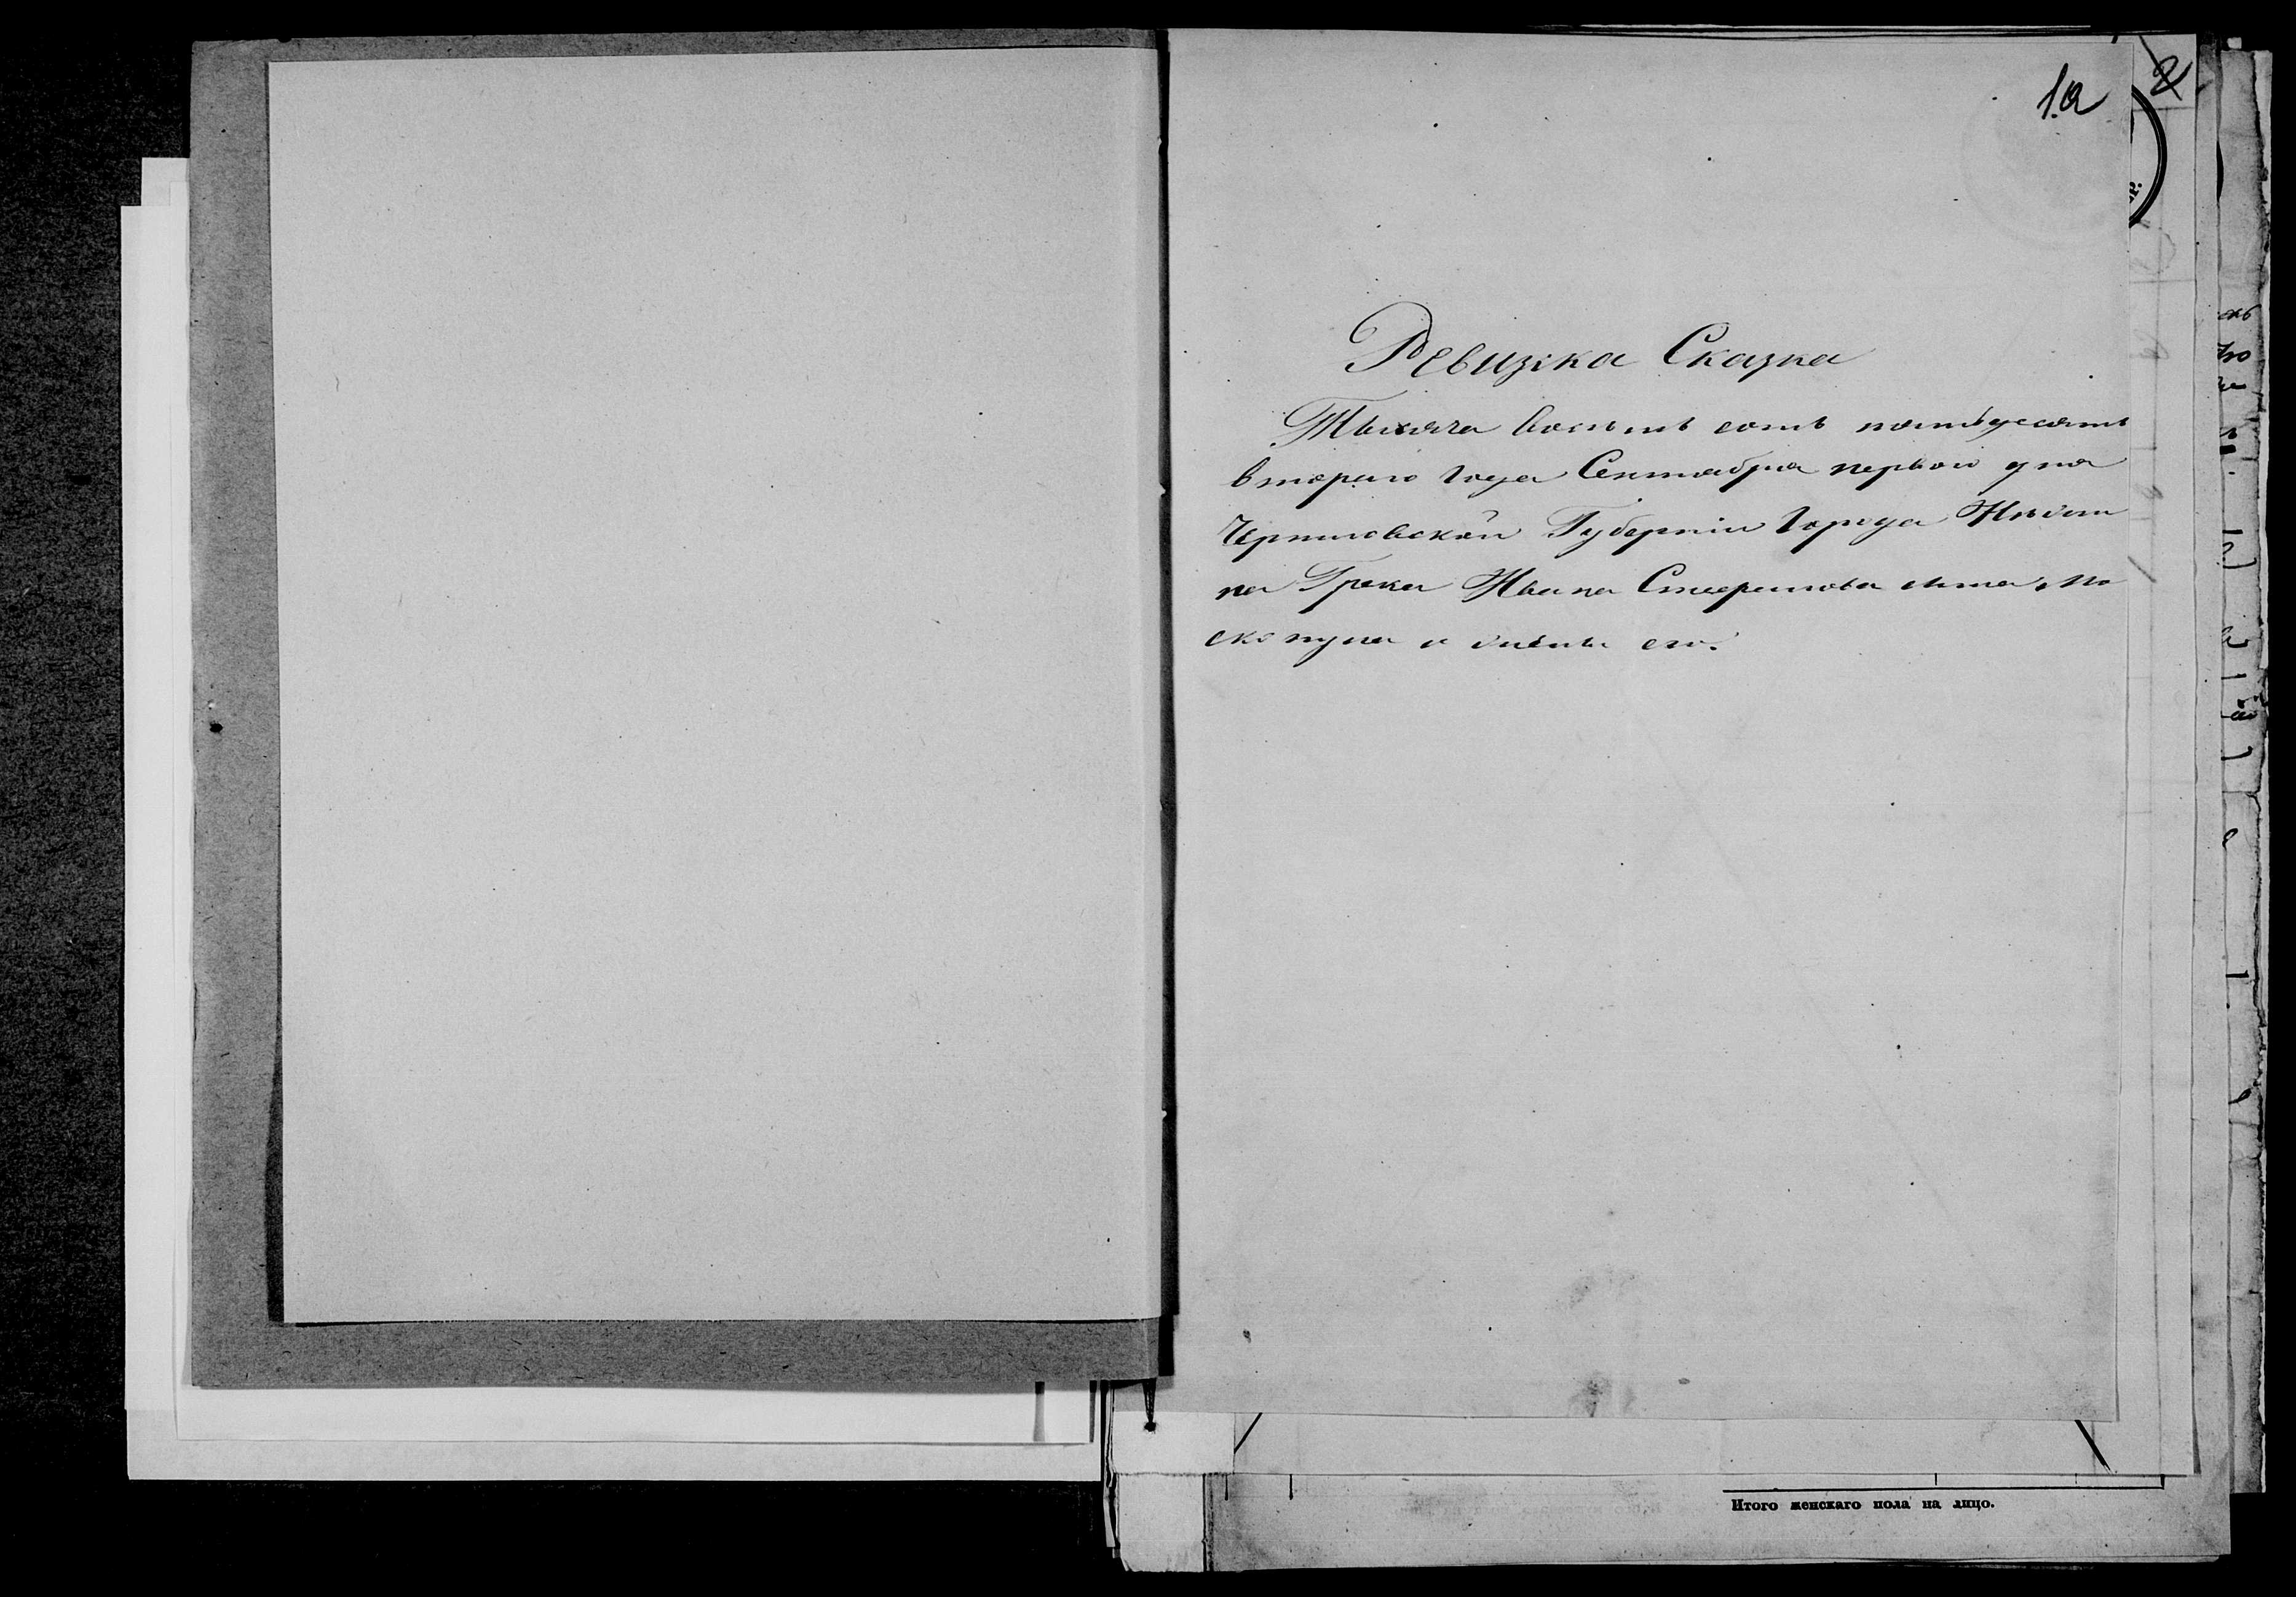 1.а
2
Ревизка Сказка
Тысяча восемь сотъ пятьдесятъ
втораго Года Сентября перваго дня
Черниговской Губерніи Города Нѣжи
на Грека Ивана
и его.
Итого женскаго пола на лицо.